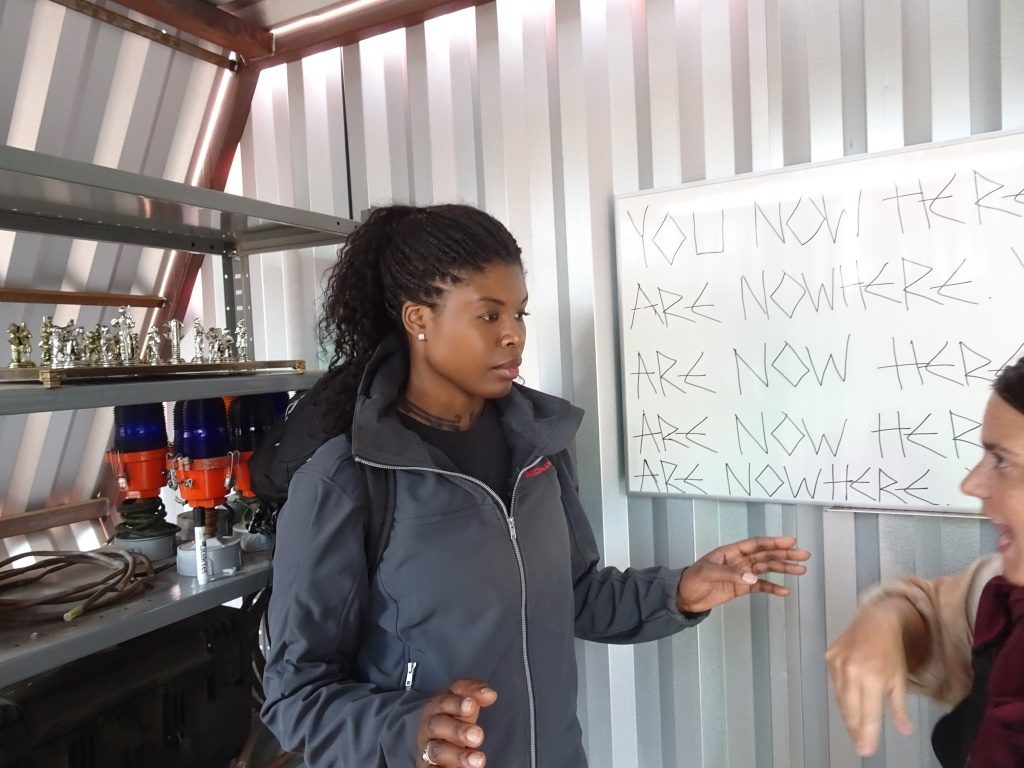 YOU NOW! HERE
ARE NOWHERE.
ARE NOW HERE
ARE NOW HER
ARE NOWHERE.